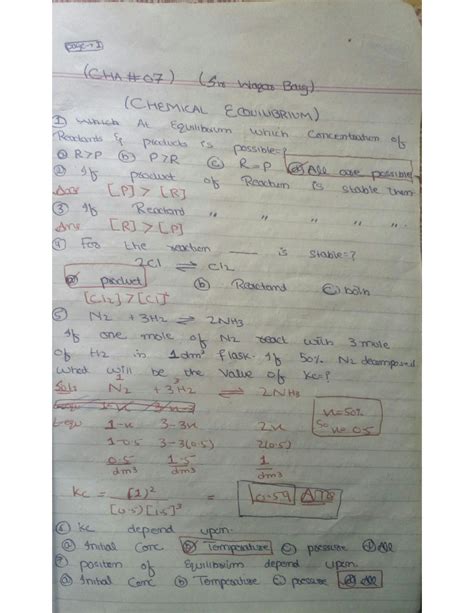 Page → 1
(CHA # 07) (Sir Waqas Baig)
(CHEMICAL EQUILIBRIUM)
① Which At Equilibrium which Concentration of
Reactants & products is possible=?
ⓐ R>P ⓑ P>R ⓒ R=P ⓓ All are possible
② If product of Reaction is stable them
Ans [P] > [R]
③ If Reactant " " " "
Ans [R] > [P]
④ For the reaction ___ is stable=?
2Cl ⇌ Cl2
ⓐ product ⓑ Reactand ⓒ both
[Cl2] > [Cl]
⑤ N2 + 3H2 ⇌ 2NH3
If one mole of N2 react with 3 mole
of H2 in 1dm³ flask. If 50% N2 decomposed
what will be the value of Kc=?
1 3
Sol: N2 + 3H2 ⇌ 2NH3
t=equ 1-x 3-3x 2x
x=50%
So x=0.5
1-0.5 3-3(0.5) 2(0.5)
0.5/dm3 1.5/dm3 1/dm3
Kc = (1)²/[0.5][1.5]³ = = 0.59 Ans
⑥ Kc depend upon.
ⓐ Initial Conc ⓑ Temperature ⓒ pressure ⓓ All
⑦ position of Equilibrium depend upon
ⓐ Initial Conc ⓑ Temperature ⓒ pressure ⓓ all